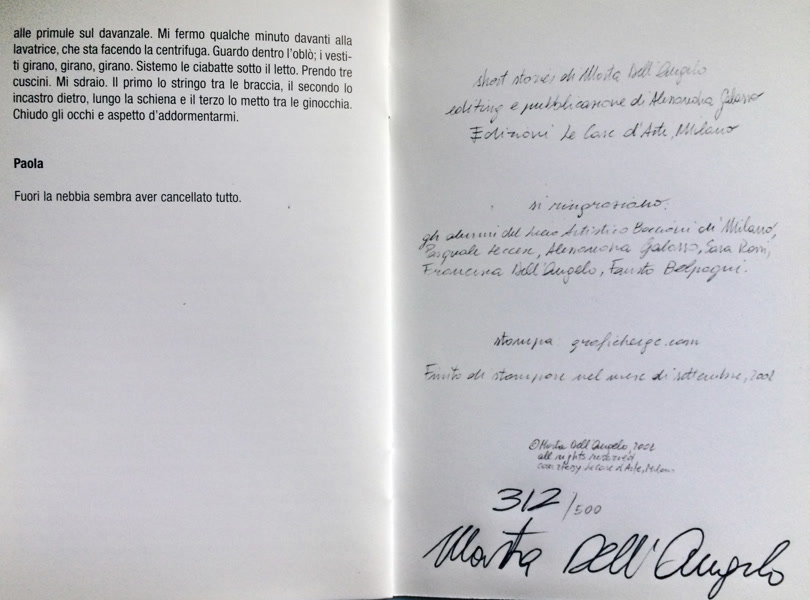 alle primule sul davanzale. Mi fermo qualche minuto davanti alla
lavatrice, che sta facendo la centrifuga. Guardo dentro l'oblò; i vesti-
ti girano, girano, girano. Sistemo le ciabatte sotto il letto. Prendo tre
cuscini. Mi sdraio. Il primo lo stringo tra le braccia, il secondo lo
incastro dietro, lungo la schiena e il terzo lo metto tra le ginocchia.
Chiudo gli occhi e aspetto d'addormentarmi.
Paola
Fuori la nebbia sembra aver cancellato tutto.
short stories di Marta Dell'Angelo
editing e pubblicazione di Alessandra Galasso
Edizioni Le Case d'Arte, Milano
si ringraziano:
gli alunni del Liceo Artistico Boccioni di Milano,
Pasquale Leccese, Alessandra Galasso, Sara Rossi,
Francesca Dell'Angelo, Fausto
stampa: graficheige.com
Finito di stampare nel mese di settembre, 2002
©Marta Dell'Angelo, 2002
all rights reserved
courtesy Le Case d'Arte, Milano
312/500
Marta Dell'Angelo